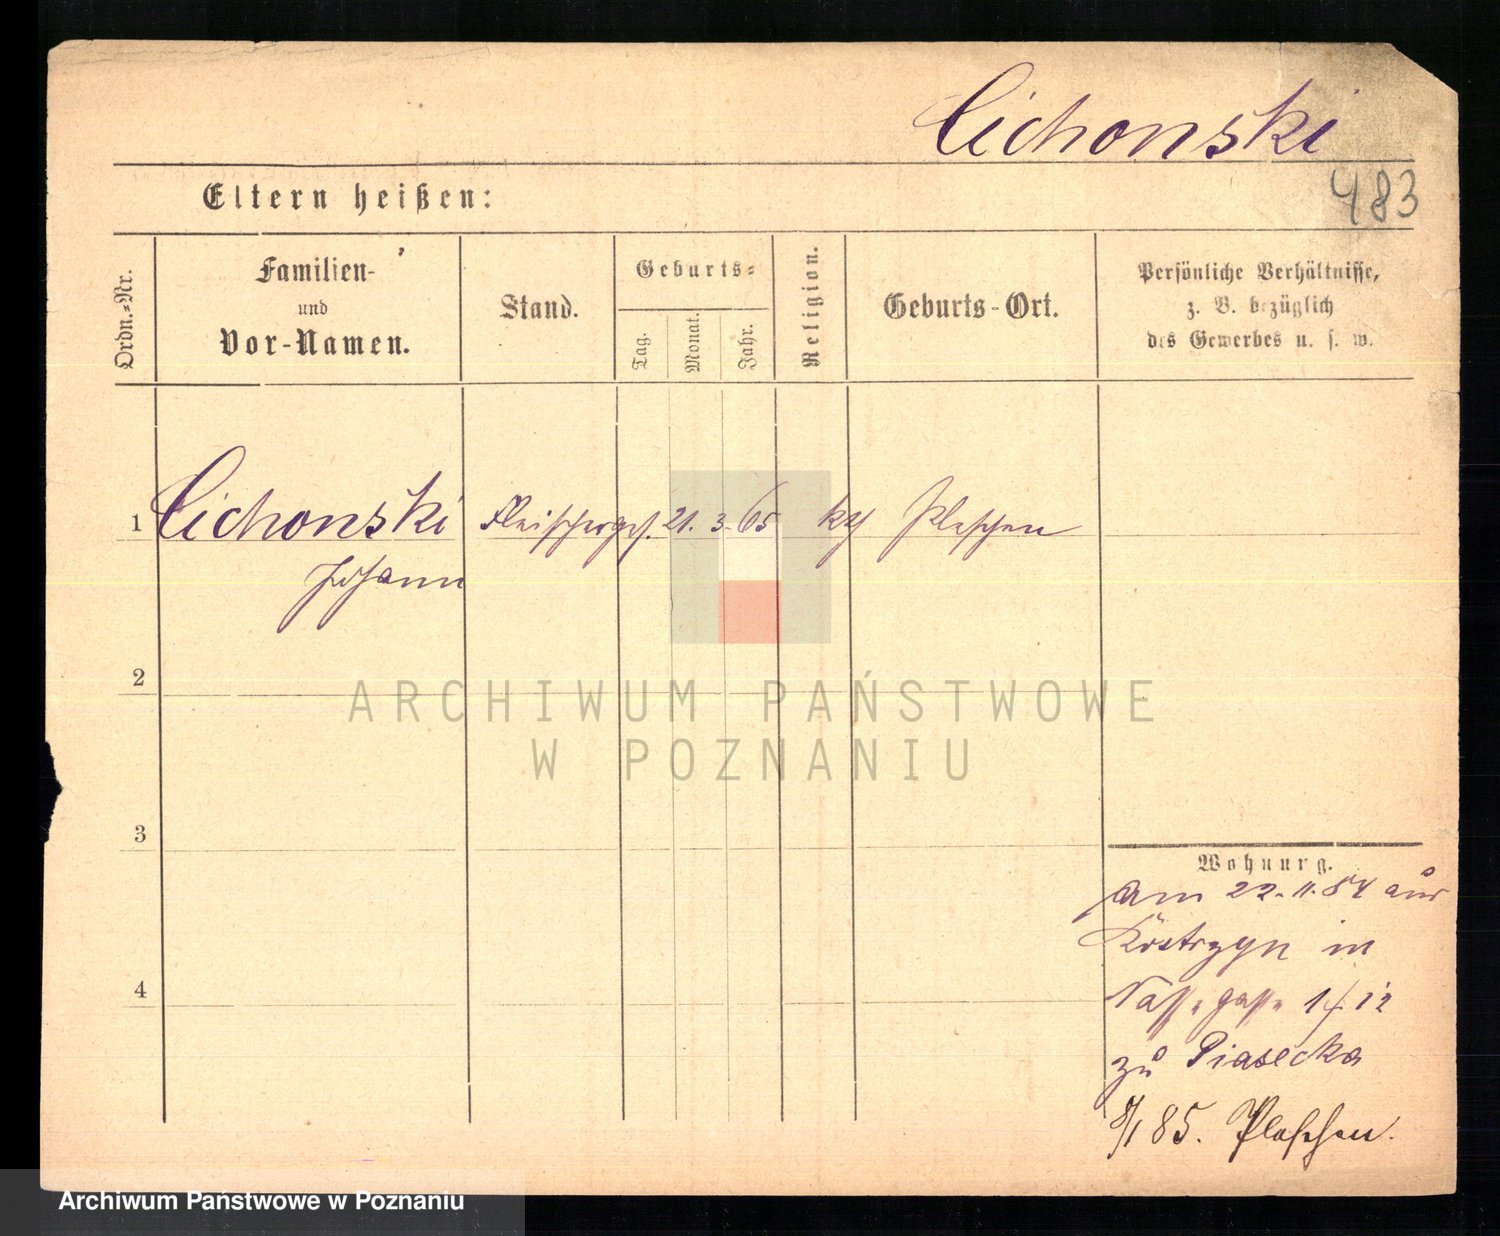 Cichonski
483
Eltern heißen:
Ordn.-Nr.
Familien-
und
Vor-Namen.
Stand.
Geburts-
Tag.
Monat.
Jahr.
Religion.
Geburts-Ort.
Persönliche Verhältnisse,
z. B. bezüglich
des Gewerbes u. s. w.
1 Cichonski Fleischerges. 21. 3. 65 kth Pleschen
Johann
2
ARCHIWUM PAŃSTWOWE
W POZNANIU
3
Wohnung.
am 22. 11. 84 aus
Kostrzyn in
Nassegasse 1/12
zu Piasecka
4
8/1 85. Pleschen.
Archiwum Państwowe w Poznaniu